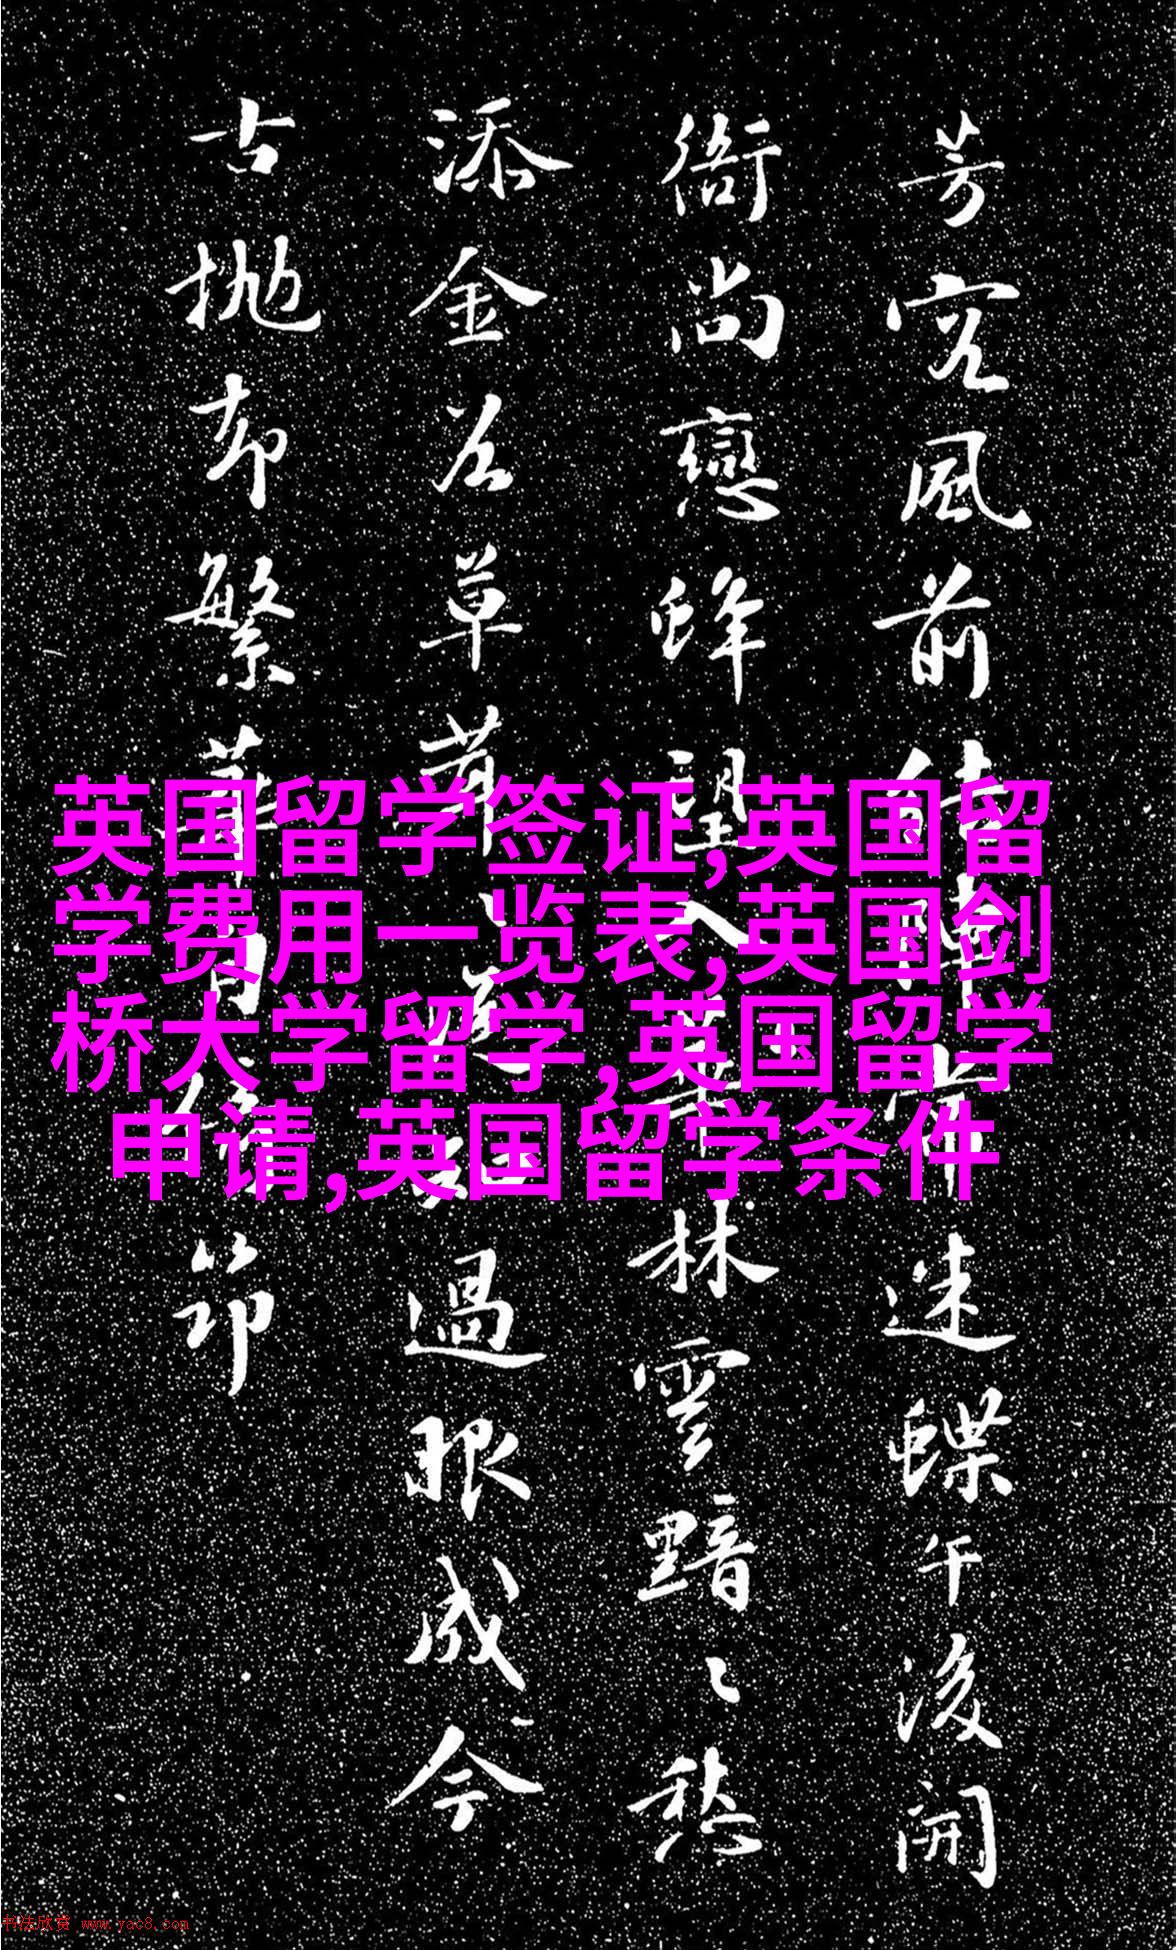 芳容風前 迷蝶午後開
衙尚戀蜂望入 林雲黯愁
添金谷草茸 過眼成今
古拋却繁華 節
英国留学签证,英国留
学费用一览表,英国剑
桥大学留学,英国留学
申请,英国留学条件
书法欣赏 www.yac8.com